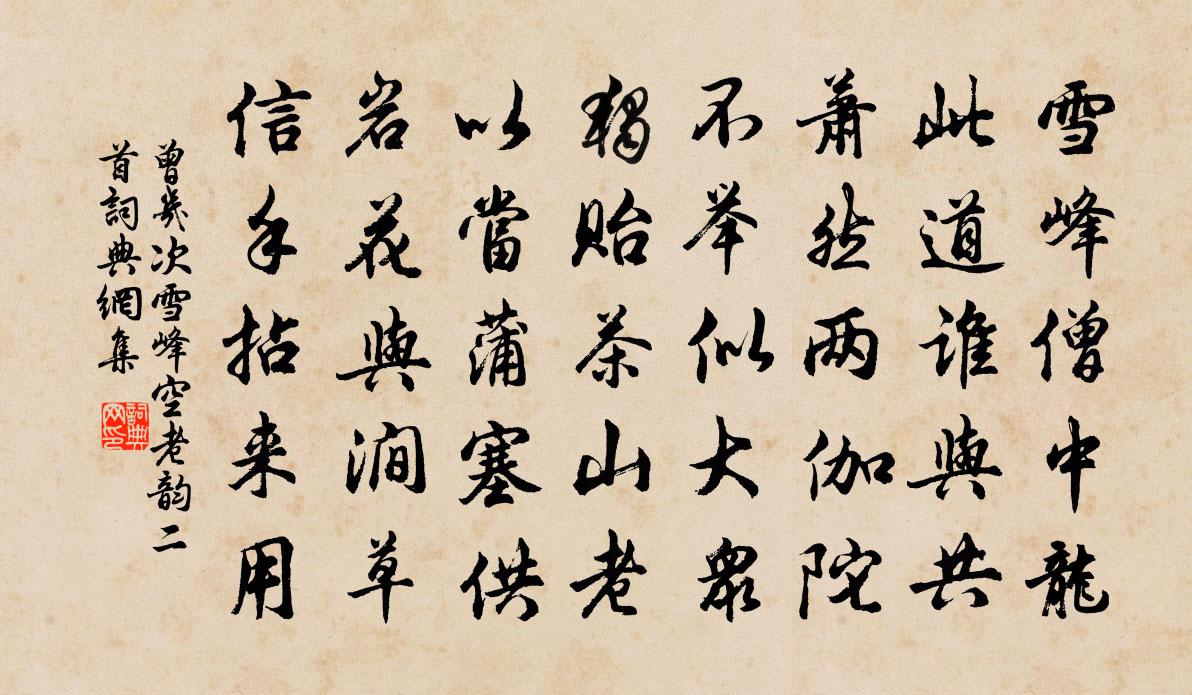 雪峰僧中龍
此道誰與共
蕭然两伽陀
不举似大眾
獨貽茶山老
以當蒲塞供
岩花與澗草
信手拈来用
曾幾次雪峰空老韵二
首詞典網集
詞典网印